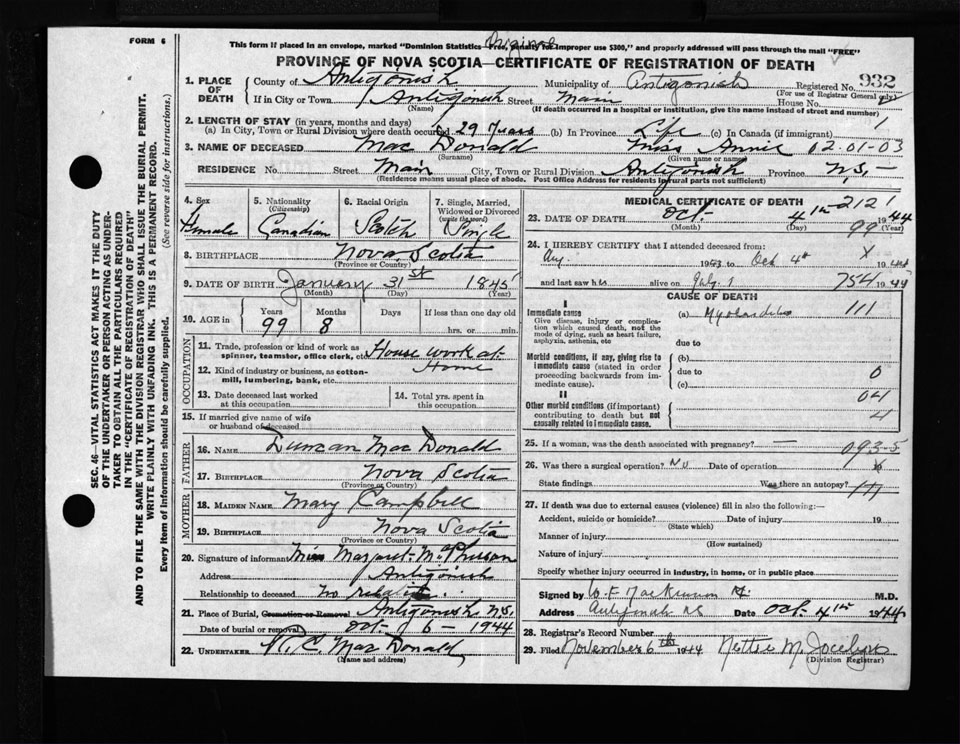 FORM 6
Original
This form if placed in an envelope, marked "Dominion Statistics—Free, penalty for improper use $300," and properly addressed will pass through the mail "FREE"
PROVINCE OF NOVA SCOTIA—CERTIFICATE OF REGISTRATION OF DEATH
932
1. PLACE OF DEATH
County of Antigonish Municipality of Antigonish Registered No.
(For use of Registrar General only)
If in City or Town Antigonish Street Main House No.
(Name) (If death occurred in a hospital or institution, give the name instead of street and number)
2. LENGTH OF STAY (in years, months and days) 1
(a) In City, Town or Rural Division where death occurred 29 Years (b) In Province Life (c) In Canada (if immigrant)
3. NAME OF DECEASED Mac Donald Miss Annie 02-01-03
(Surname) (Given name or names)
RESIDENCE No. Street Main City, Town or Rural Division Antigonish Province N.S.
(Residence means usual place of abode. Post Office Address for residents in rural parts not sufficient)
4. Sex
Female
5. Nationality
(Citizenship)
Canadian
6. Racial Origin
Scotch
7. Single, Married, Widowed or Divorced
(write the word)
Single
8. BIRTHPLACE Nova Scotia
(Province or Country)
9. DATE OF BIRTH January 31st 1845
(Month) (Day) (Year)
10. AGE in
Years Months Days If less than one day
99 8 hrs. or min.
OCCUPATION
11. Trade, profession or kind of work as spinner, teamster, office clerk, etc. House work at
Home
12. Kind of industry or business, as cotton-mill, lumbering, bank, etc.
13. Date deceased last worked at this occupation
14. Total yrs. spent in this occupation
15. If married give name of wife or husband of deceased
FATHER
16. NAME Duncan Mac Donald
17. BIRTHPLACE Nova Scotia
(Province or Country)
MOTHER
18. MAIDEN NAME Mary Campbell
19. BIRTHPLACE Nova Scotia
(Province or Country)
20. Signature of informant Miss Margaret McPherson
Address Antigonish
Relationship to deceased no relation
21. Place of Burial, Cremation or Removal Antigonish N.S.
Date of burial or removal Oct 6 - 1944
22. UNDERTAKER Mac Donald
(Name and address)
MEDICAL CERTIFICATE OF DEATH
2121
23. DATE OF DEATH Oct. 4th 1944
(Month) (Day) (Year)
99
24. I HEREBY CERTIFY that I attended deceased from: X
Aug. to Oct 4th
and last saw h alive on July 1 1944
754
CAUSE OF DEATH
I
Immediate cause
Give disease, injury or complication which caused death, not the mode of dying, such as heart failure, asphyxia, asthenia, etc
(a) Myocarditis 111
due to
Morbid conditions, if any, giving rise to immediate cause (stated in order proceeding backwards from immediate cause).
(b)
due to 0
(c)
II
Other morbid conditions (if important) contributing to death but not causally related to immediate cause.
04
4
25. If a woman, was the death associated with pregnancy? — 093-5
26. Was there an surgical operation? No Date of operation
State findings Was there an autopsy?
27. If death was due to external causes (violence) fill in also the following:—
Accident, suicide or homicide? Date of injury 19
(State which)
Manner of injury
(How sustained)
Nature of injury
Specify whether injury occurred in industry, in home, or in public place
Signed by W. F. MacKinnon M.D.
Address Antigonish NS Date Oct. 4th 1944
28. Registrar's Record Number
29. Filed November 6th 1944 Nettie M. Jocelyn
(Division Registrar)
SEC. 46—VITAL STATISTICS ACT MAKES IT THE DUTY
OF THE UNDERTAKER OR PERSON ACTING AS UNDER-
TAKER TO OBTAIN ALL THE PARTICULARS REQUIRED
IN THE "CERTIFICATE OF REGISTRATION OF DEATH"
AND TO FILE THE SAME WITH THE DIVISION REGISTRAR WHO SHALL ISSUE THE BURIAL PERMIT.
WRITE PLAINLY WITH UNFADING INK. THIS IS A PERMANENT RECORD.
Every item of information should be carefully supplied. (See reverse side for instructions.)